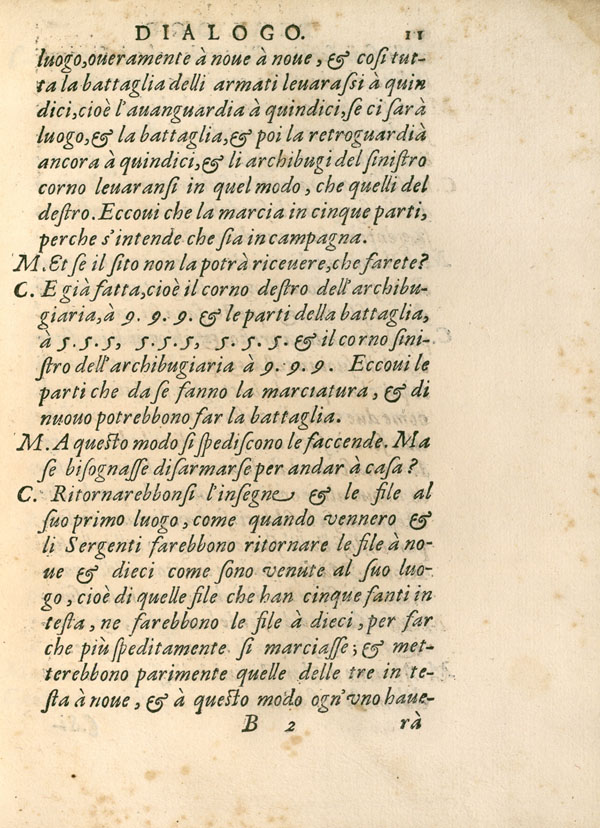 DIALOGO. 11
luogo,oueramente à noue à noue, & cosi tut-
ta la battaglia delli armati leuarassi à quin
dici,cioè l'auanguardia à quindici,se ci sarà
luogo,& la battaglia,& poi la retroguardià
ancora à quindici,& li archibugi del sinistro
corno leuaransi in quel modo, che quelli del
destro. Eccoui che la marcia in cinque parti,
perche s'intende che sia in campagna.
M. Et se il sito non la potrà riceuere,che farete?
C. E già fatta,cioè il corno destro dell'archibu-
giaria,à 9. 9. 9. & le parti della battaglia,
à 5.5.5, 5.5.5, 5.5.5. & il corno sini-
stro dell'archibugiaria à 9. 9. 9. Eccoui le
parti che da se fanno la marciatura, & di
nuouo potrebbono far la battaglia.
M. A questo modo si spediscono le faccende. Ma
se bisognasse disarmarse per andar à casa?
C. Ritornarebbonsi l'insegne & le file al
suo primo luogo, come quando vennero &
li Sergenti farebbono ritornare le file à no-
ue & dieci come sono venute al suo luo-
go, cioè di quelle file che han cinque fanti in
testa, ne farebbono le file à dieci, per far
che più speditamente si marciasse; & met-
terebbono parimente quelle delle tre in te-
sta à noue, & à questo modo ogn'vno haue-
B 2 rà